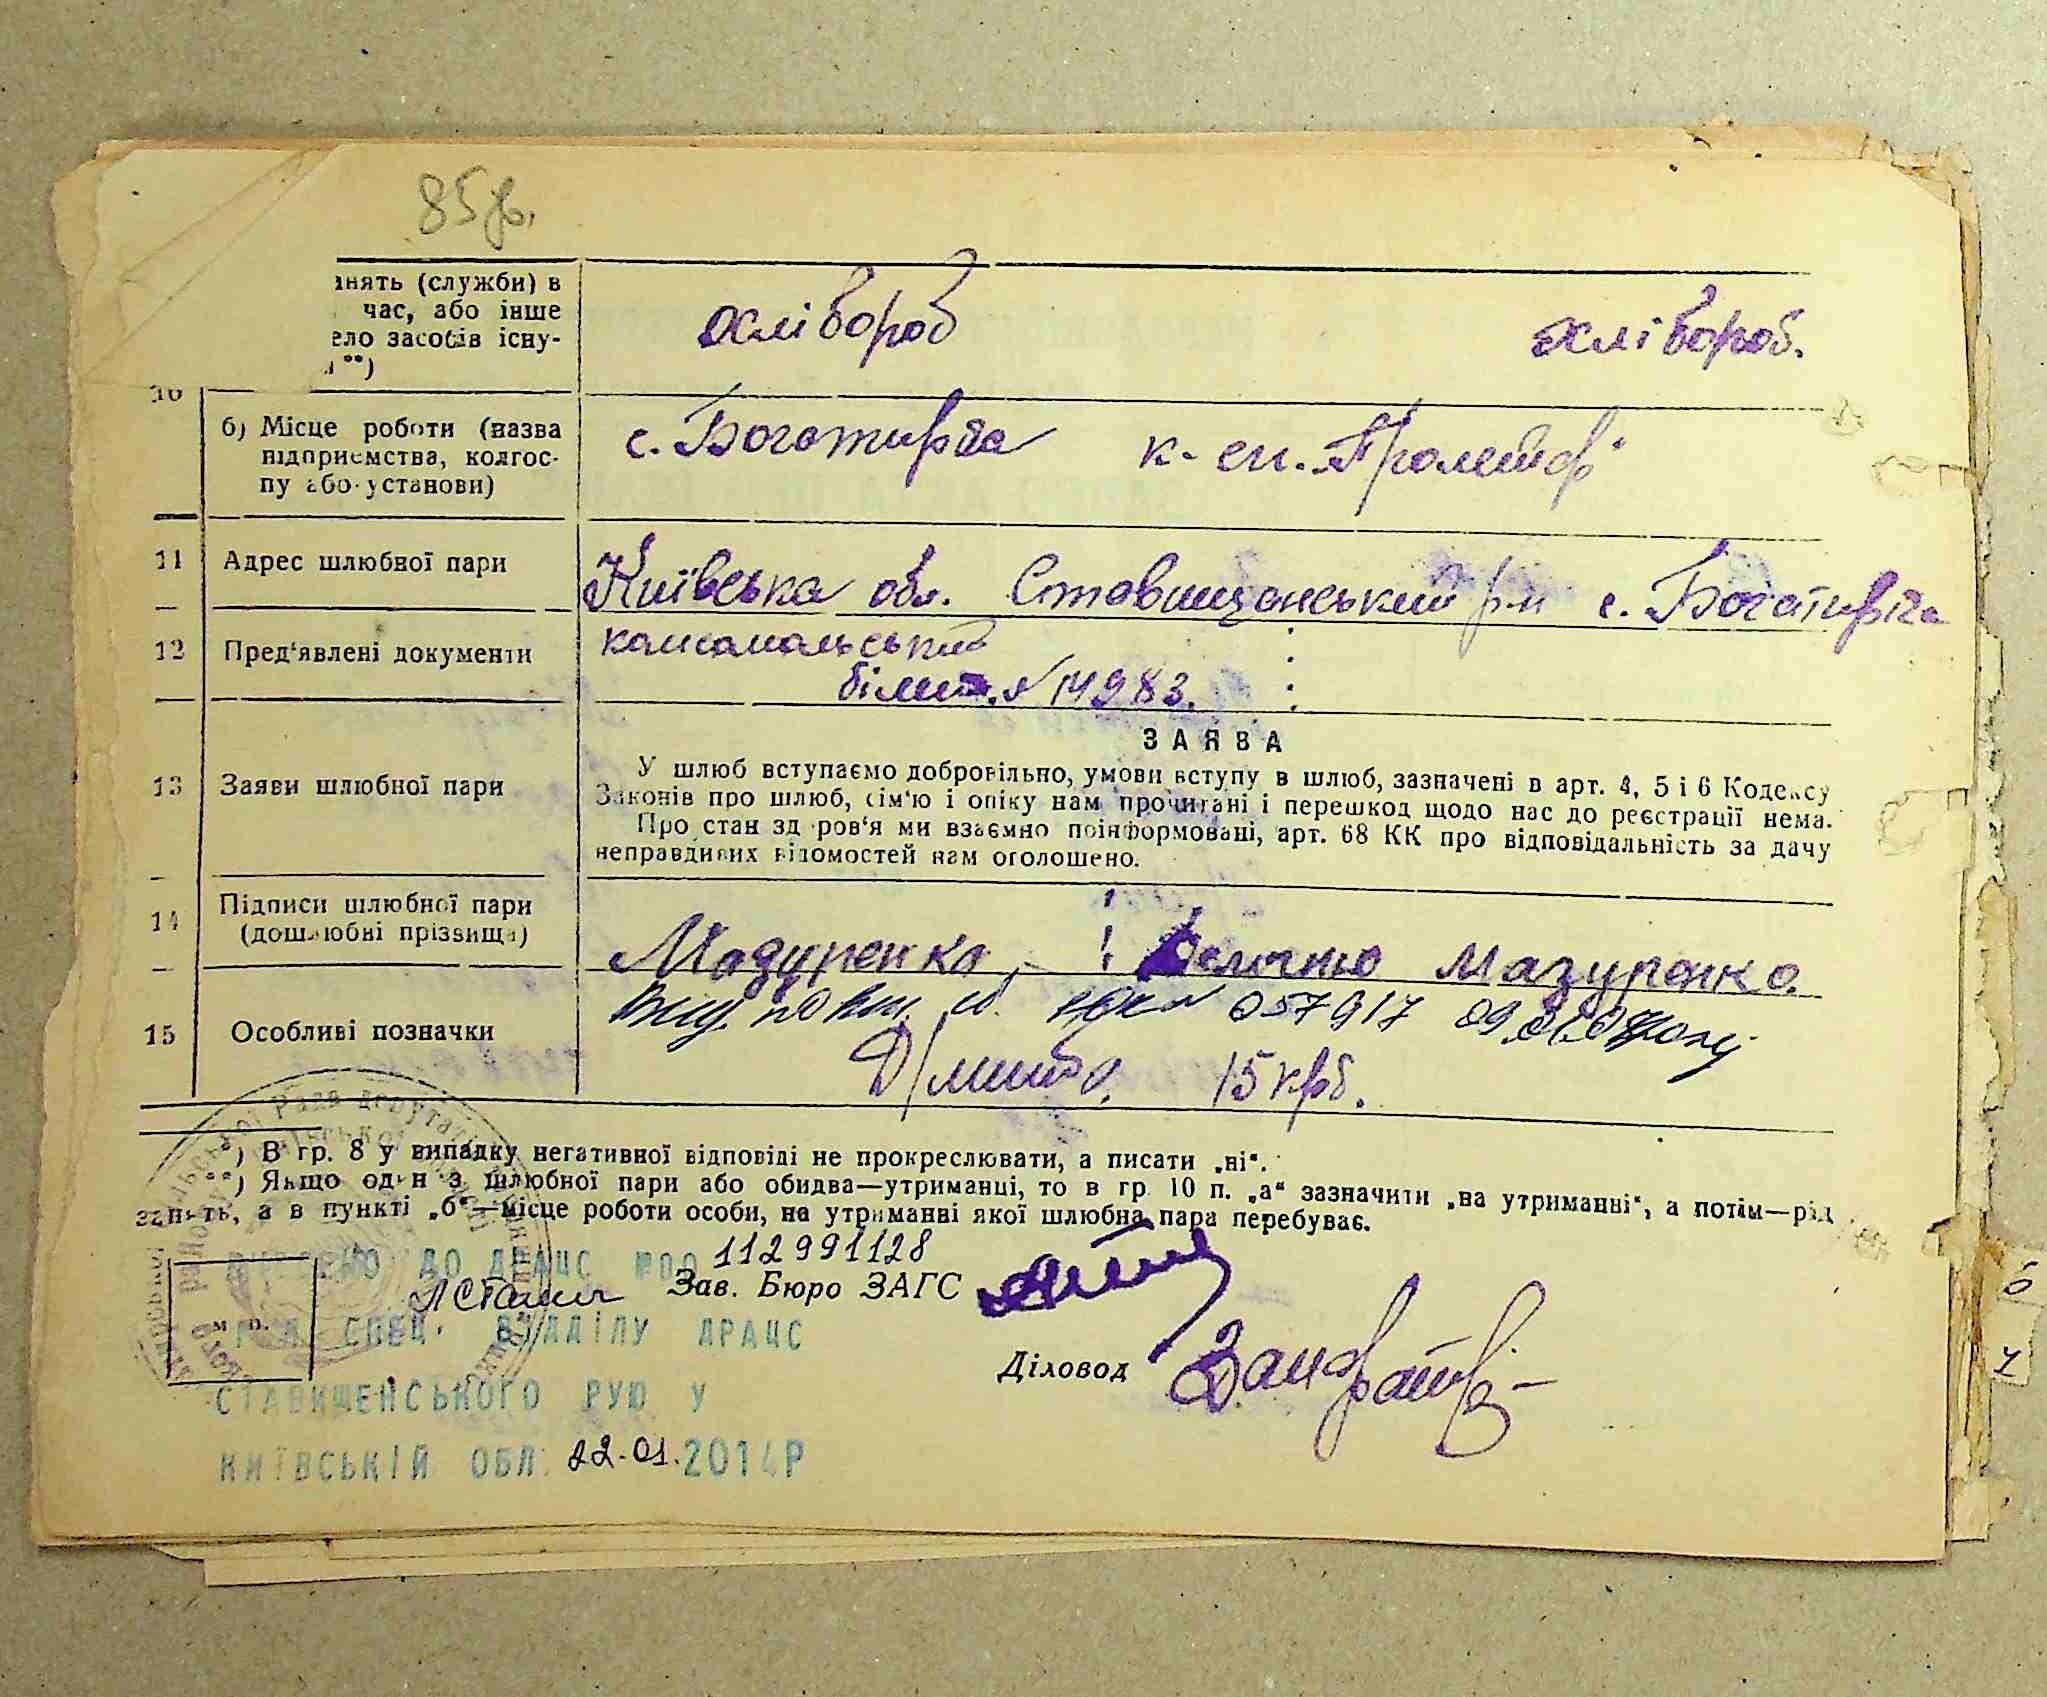 85
анять (служби) в
час, або інше
ело засобів існу-
**)
хлівороб
хлівороб.
10
б) Місце роботи (назва
підприємства, колгос-
пу або установи)
с. Богатирка к-сп. Пролетар
11
Адрес шлюбної пари
Київська обл. Ставищанський р-н с.
12
Пред'явлені документи
комсомольський
білет. № 14983.
13
Заяви шлюбної пари
ЗАЯВА
У шлюб вступаємо добровільно, умови вступу в шлюб, зазначені в арт. 4, 5 і 6 Кодексу
Законів про шлюб, сім'ю і опіку нам прочитані і перешкод щодо нас до реєстрації нема.
Про стан здоров'я ми взаємно поінформовані, арт. 68 КК про відповідальність за дачу
неправдивих відомостей нам оголошено.
14
Підписи шлюбної пари
(дошлюбні прізвища)
Мазуренко Мазуренко
15
Особливі позначки
057917
15 крб.
*) В гр. 8 у випадку негативної відповіді не прокреслювати, а писати „ні“.
**) Якщо один з шлюбної пари або обидва—утриманці, то в гр. 10 п. „а“ зазначити „на утриманні“, а потім—рід
занять, а в пункті „б“—місце роботи особи, на утриманні якої шлюбна пара перебуває.
ДО ДРАЦС №00112991128
Зав. Бюро ЗАГС
м. п.
СПЕЦ. ВІДДІЛУ ДРАЦС
Діловод
СТАВИЩЕНСЬКОГО РУЮ У
КИЇВСЬКІЙ ОБЛ. 22.01.2014Р